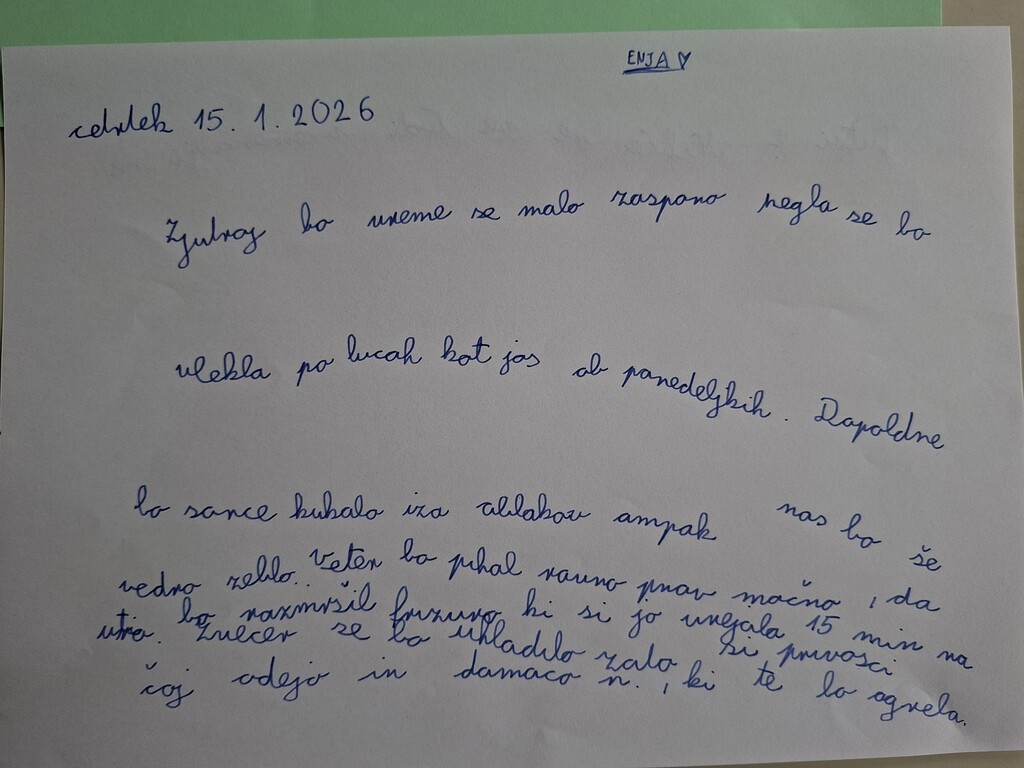 ENJA
cetrtek 15. 1. 2026
Zjutraj bo vreme se malo zaspano megla se bo
vlekla po lucah kot jas ob panedeljkih. Dapoldne
bo sonce kukalo iza oblakov ampak nas bo še
vedno zeblo. Veter bo pihal ravno prav močno, da
bo razmršil frizuro ki si jo urejala 15 min na
utro. Zvecer se bo uhladilo zato si privosci
čaj odejo in domaco n., ki te bo ogrela.